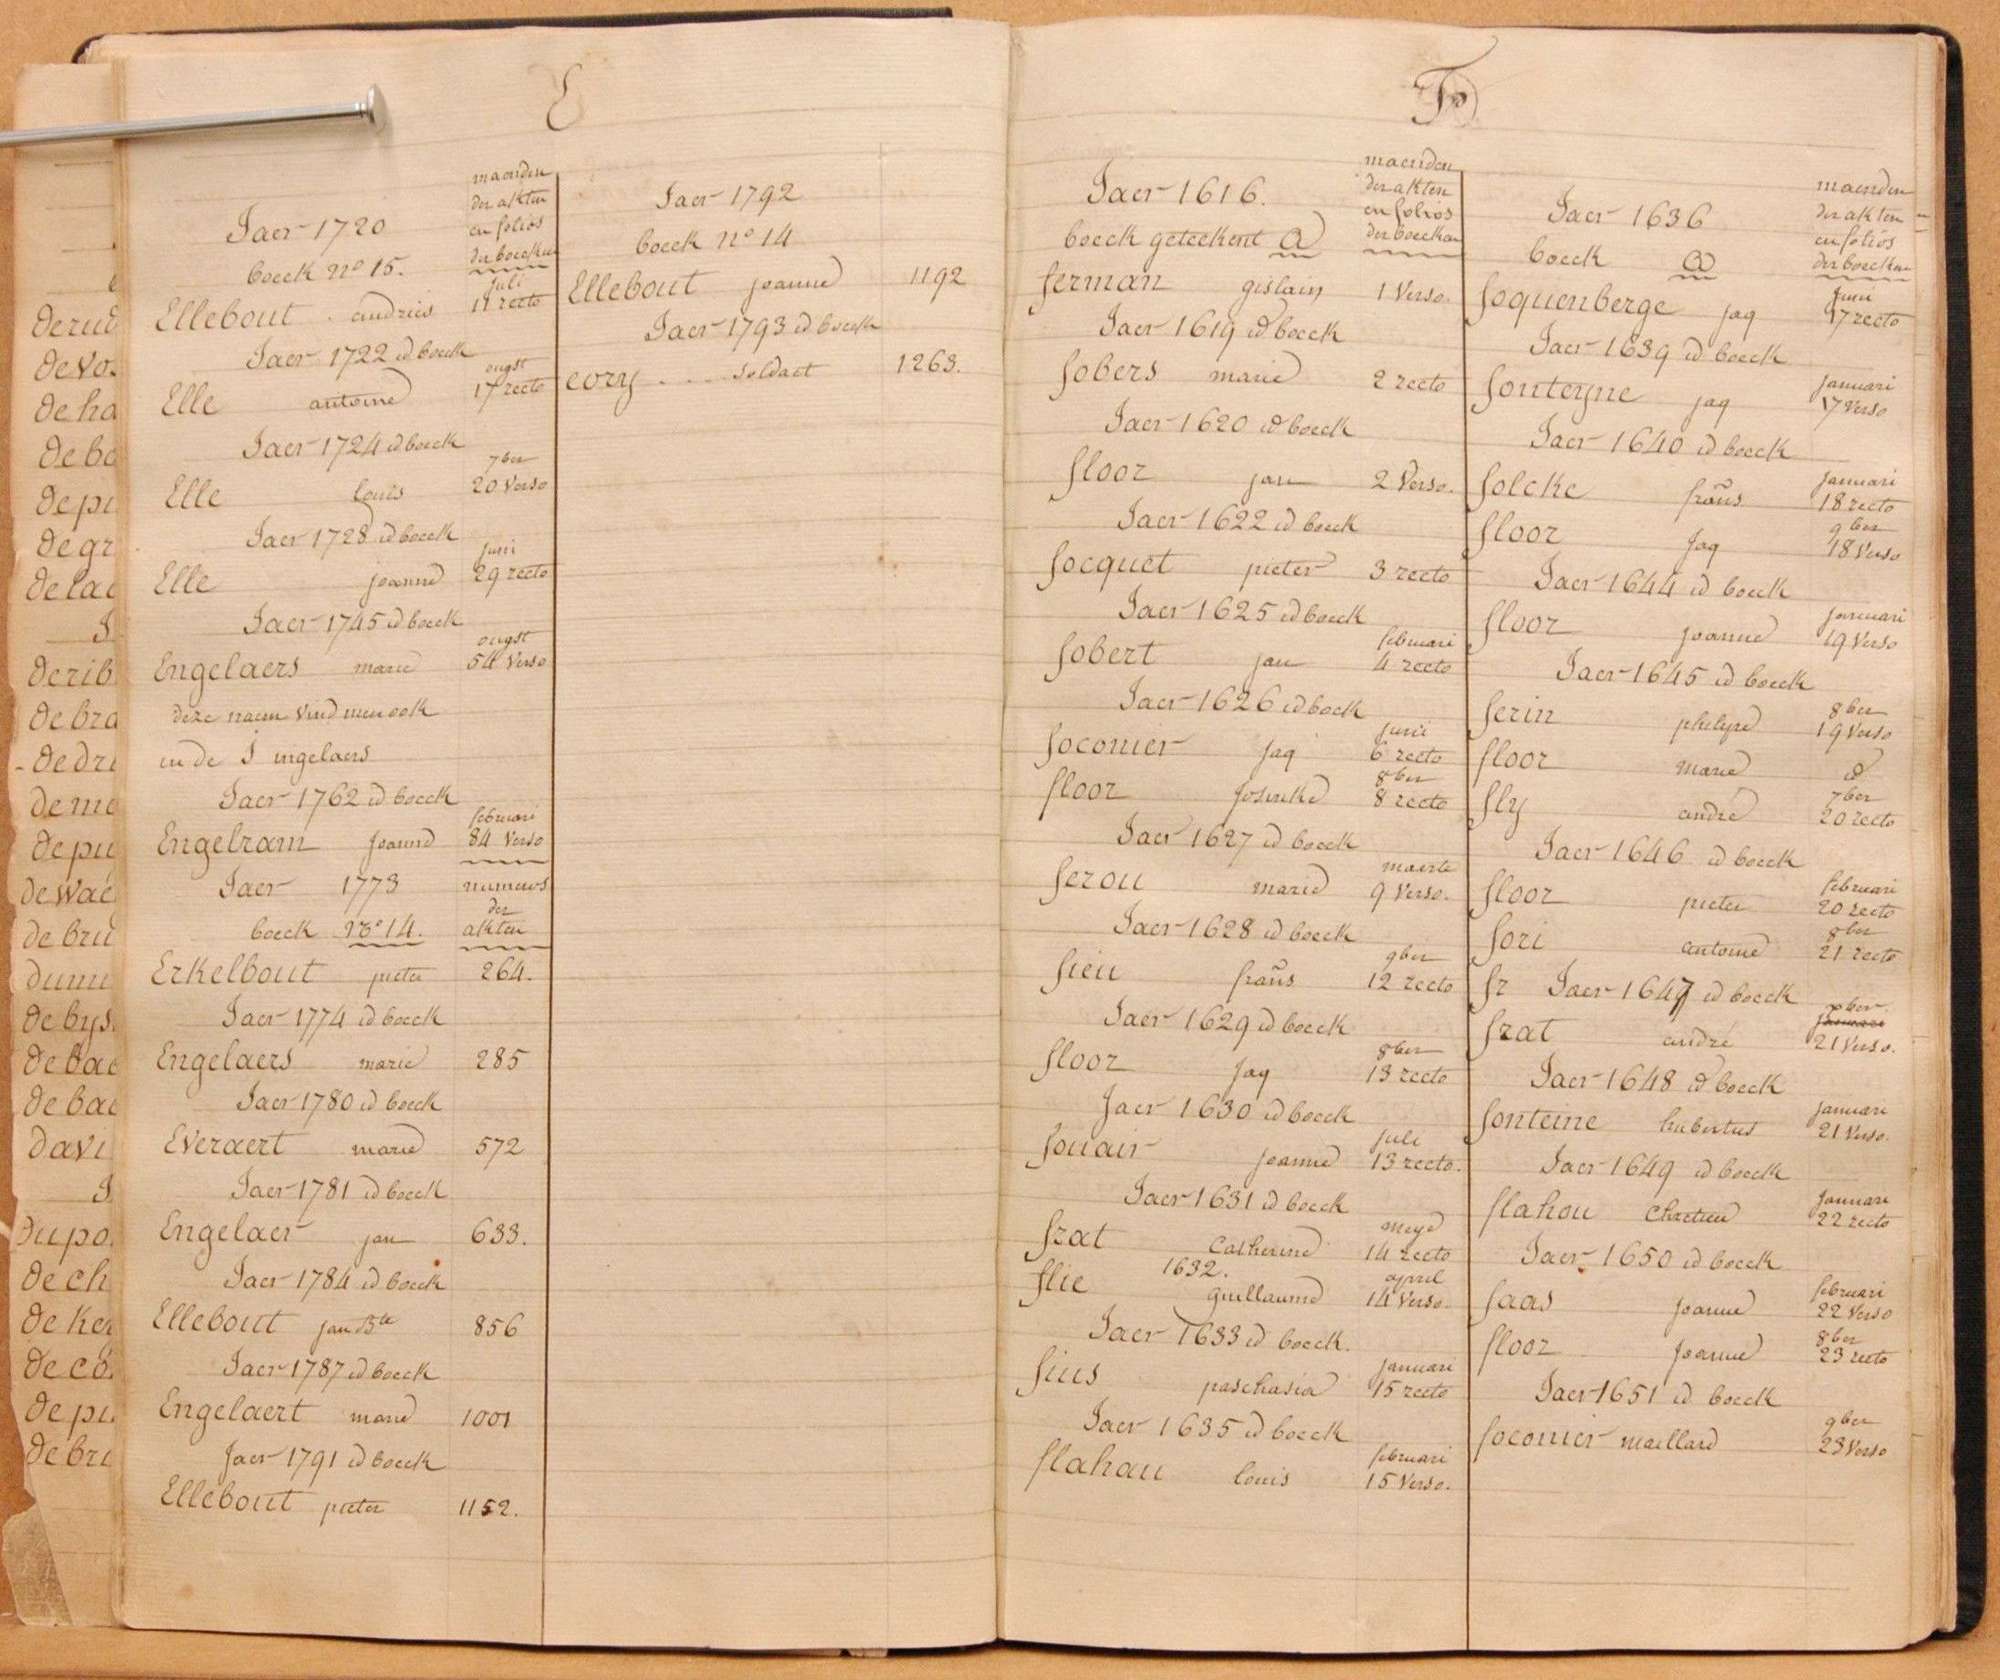 derud
devos
de ha
de bo
de pi
de gr
de lac
J
de rib
de bra
de dri
de me
de pu
de wae
de bru
dumu
de bys
de bae
de bae
davi
J
dupo
de ch
de ker
de co
de pu
de bri
E
maenden
der akten
en folios
der boecken
Jaer 1720
boeck no 15.
juli
Ellebout andries 11 recto
Jaer 1722 id boeck
ougst
Elle antoine 17 recto
Jaer 1724 id boeck
7ber
Elle louis 20 Verso
Jaer 1728 id boeck
juni
Elle joanne 29 recto
Jaer 1745 id boeck
ougst
Engelaers marie 54 Verso
deze naem Vind men ook
in de I ingelaers
Jaer 1762 id boeck
februari
Engelram joanne 84 Verso
Jaer 1773 numeros
der
boeck no 14. akten
Erkelbout pieter 264.
Jaer 1774 id boeck
Engelaers marie 285
Jaer 1780 id boeck
Everaert marie 572
Jaer 1781 id boeck
Engelaer jan 633.
Jaer 1784 id boeck
Ellebout jan Bte 856
Jaer 1787 id boeck
Engelaert marie 1001
Jaer 1791 id boeck
Ellebout pieter 1152.
Jaer 1792
boeck no 14
Ellebout joanne 1192
Jaer 1793 id boeck
eory .... soldaet 1263.
F
maenden
der akten
en folios
der boecken
Jaer 1616.
boeck geteekent a
ferman gislain 1 Verso.
Jaer 1619 id boeck
fobers marie 2 recto
Jaer 1620 id boeck
floor jan 2 Verso.
Jaer 1622 id boeck
focquet pieter 3 recto
Jaer 1625 id boeck
februari
fobert jan 4 recto
Jaer 1626 id boeck
junii
foconier jaq 6 recto
8ber
floor josinke 8 recto
Jaer 1627 id boeck
maerte
ferou marie 9 Verso.
Jaer 1628 id boeck
9ber
fieu frañs 12 recto
Jaer 1629 id boeck
8ber
floor jaq 13 recto
Jaer 1630 id boeck
juli
fouair joanne 13 recto.
Jaer 1631 id boeck
meye
frat Catherine 14 recto
1632. april
flie guillaume 14 Verso.
Jaer 1633 id boeck.
januari
fius paschasia 15 recto
Jaer 1635 id boeck
februari
flahau louis 15 Verso.
maenden
der akten
en folios
der boecken
Jaer 1636
boeck a
juni
foquenberge jaq 17 recto
Jaer 1639 id boeck
januari
fonteyne jaq 17 Verso
Jaer 1640 id boeck
januari
folcke frañs 18 recto
9ber
floor jaq 18 Verso
Jaer 1644 id boeck
januari
floor joanne 19 Verso
Jaer 1645 id boeck
8ber
ferin phelipe 19 Verso
floor marie d
7ber
fly andré 20 recto
Jaer 1646 id boeck
februari
floor pieter 20 recto
8ber
fori antoine 21 recto
fr Jaer 1647 id boeck
8ber
januari
frat andré 21 Verso.
Jaer 1648 id boeck
januari
fonteine hubertus 21 Verso.
Jaer 1649 id boeck
januari
flahou Chretien 22 recto
Jaer 1650 id boeck
februari
faas joanne 22 Verso
8ber
floor joanne 23 recto
Jaer 1651 id boeck
9ber
foconier maillard 23 Verso